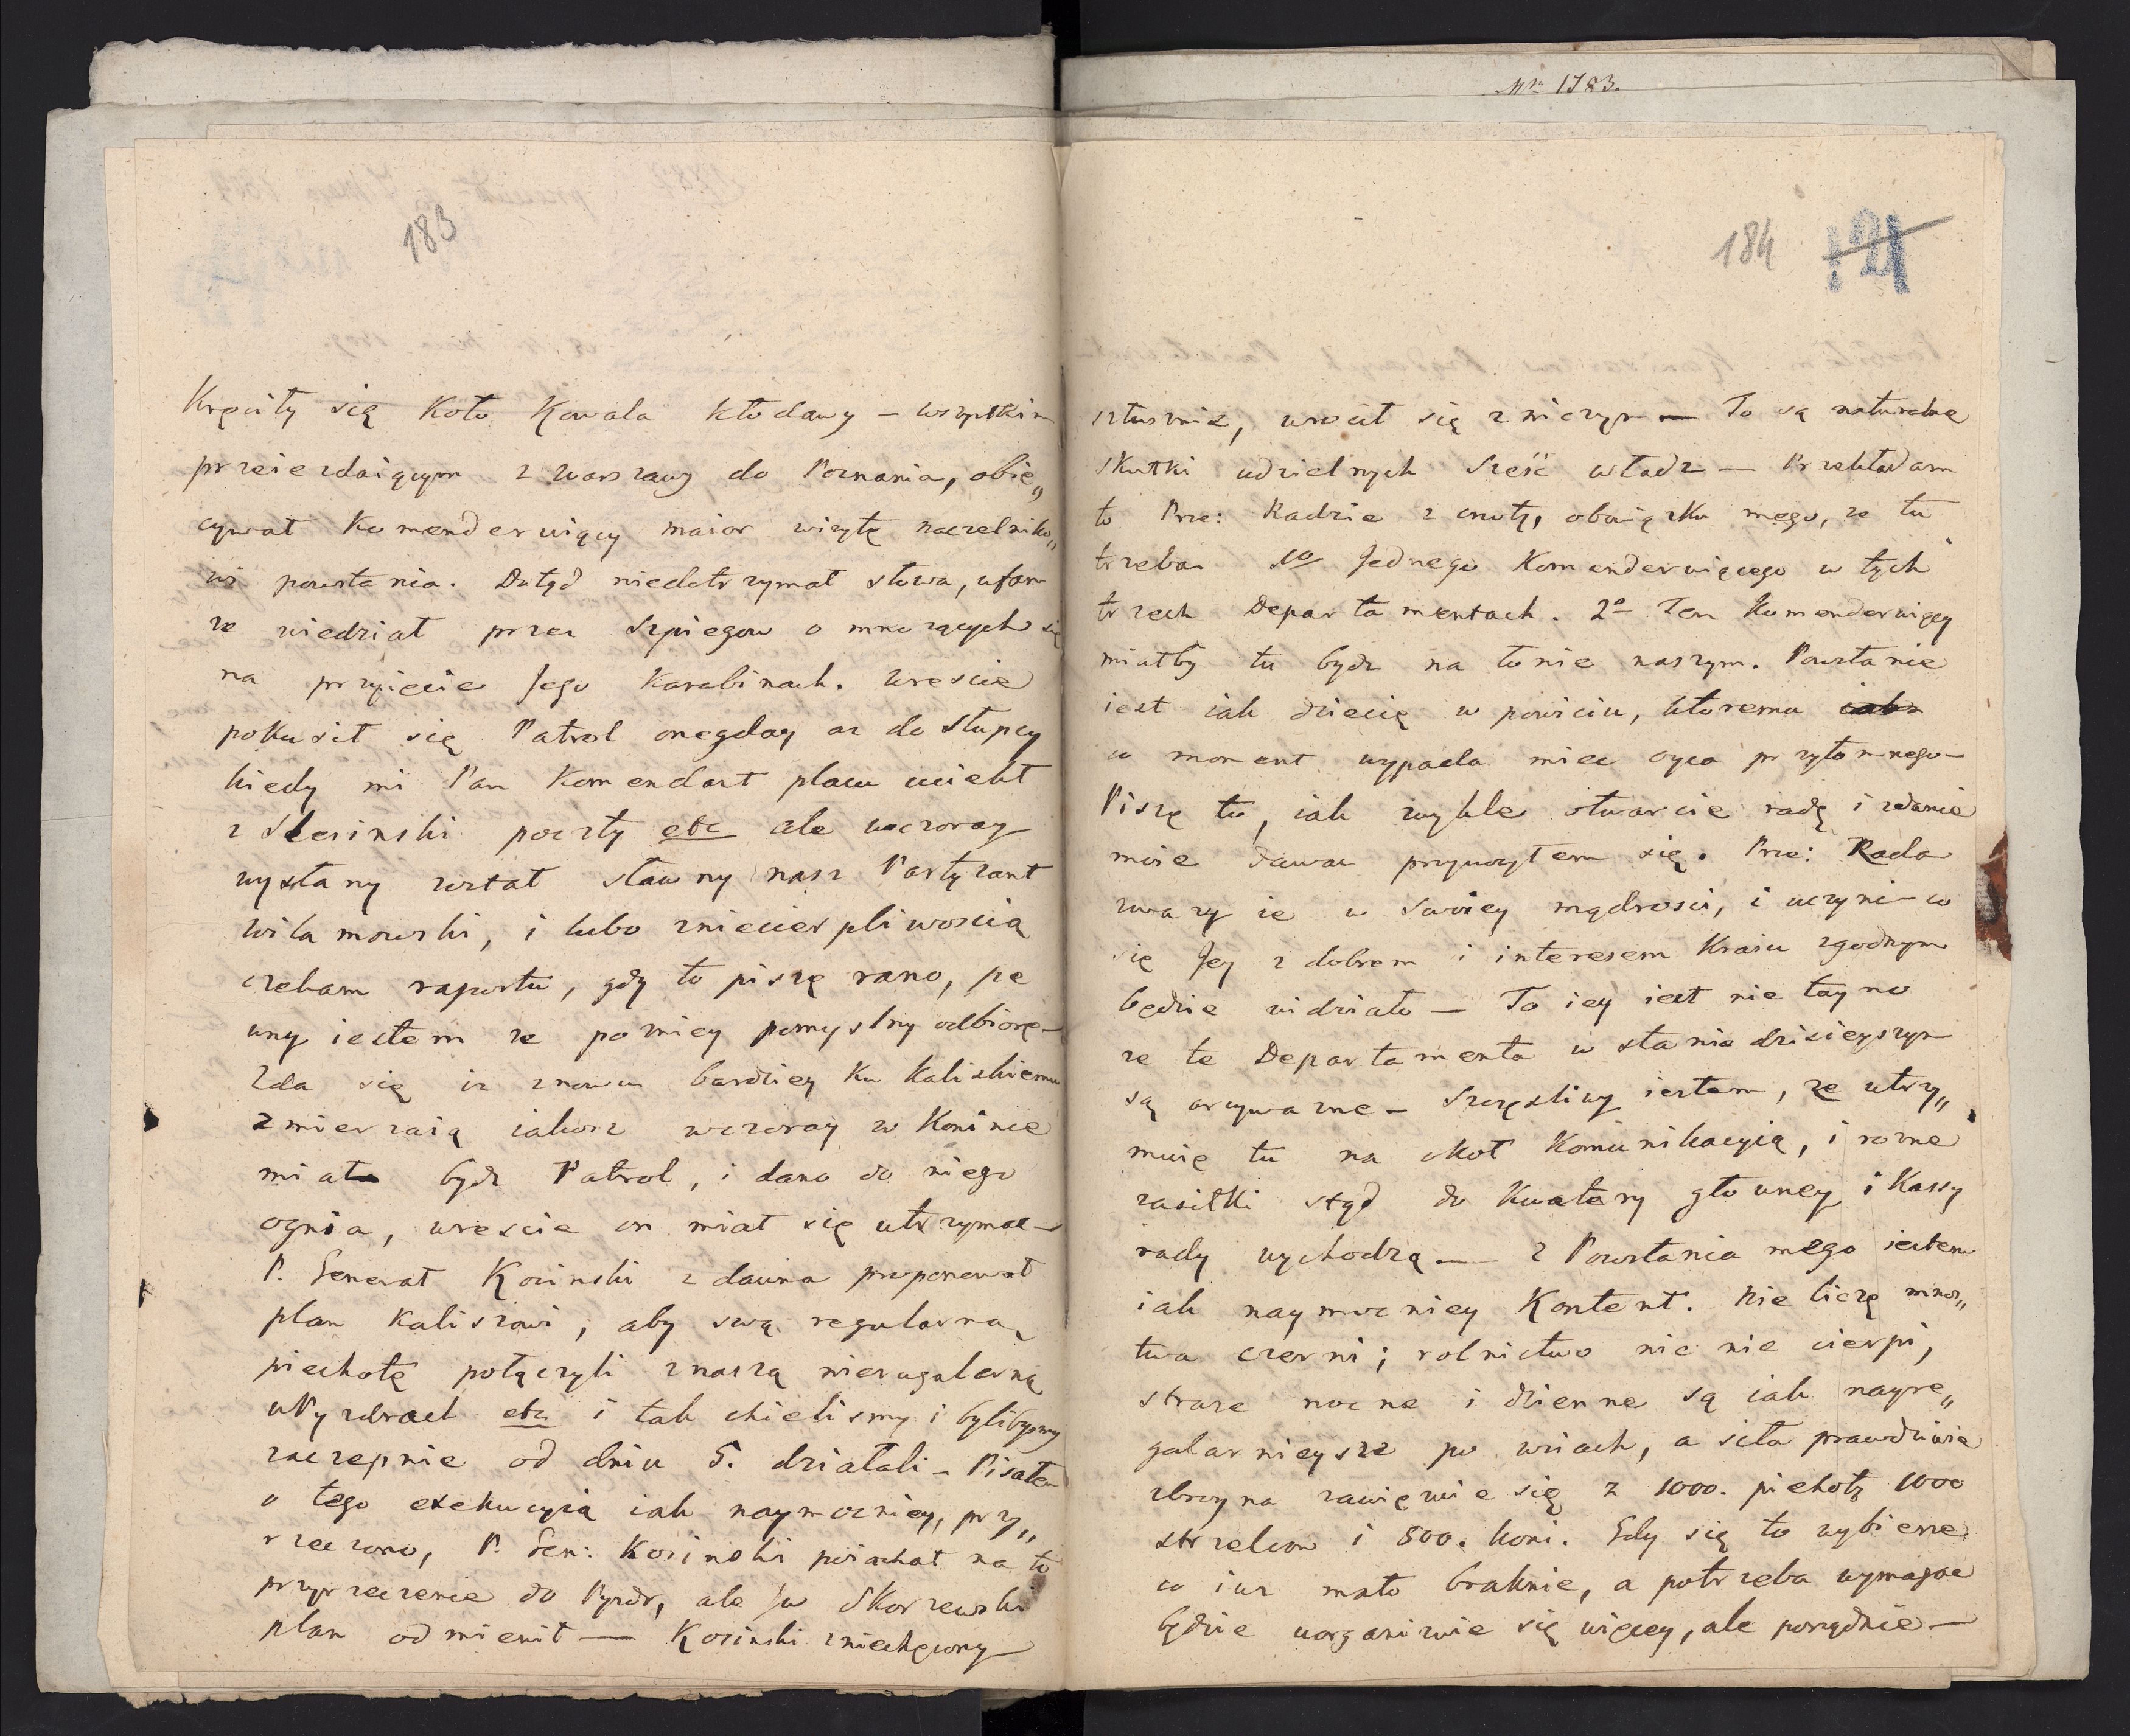 183
Kręciły się Koło Kowala Kłodawy – wszystkim
przeieżdaiącym z Warszawy do Poznania, obie„
cywał Komenderuiący maior wizytę naczelniko„
wi powstania. Dotąd niedotrzymał słowa, ufam
że wiedział przez Szpiegow o mnożących się
na przyięcie Jego Karabinach. Wreście
pokusił się Patrol onegday aż do Słupcy
kiedy mi Pan Komendant placu uciekł
z Slesinski poczty etc ale wczoray
wysłany został sławny nasz Partyzant
Wilamowski, i lubo zniecierpliwością
czekam raportu, gdy to piszę rano, pe
wny iestem że pozniey pomyslny odbiorę –
Zda się iż znowu bardziey Ku Kaliskiemu
zmierzaią iakoż wczoray w Koninie
miał bydź Patrol, i dano do niego
ognia, wreście on miał się utrzymac –
P. Generał Kosinski z dawna proponował
plan Kaliszowi, aby swą regularną
piechotę połączyli znaszą nieregularną
w Pyzdrach etc i tak chcielismy i bylibysmy
zaczepnie od dniu 5. działali – Pisałem
o tego exekucyią iak naymocniey, przy„
rzeczono, P. Gen: Kosinski poiachał na to
przyrzeczenie do Pyzdr, ale Jw Skorzewski
plan odmienił — Kosinski zniechęcony
Nr 1783.
184 121
słusznie, wrocił się z niczym — To są naturalne
skutki udzielnych Sześć władz — Przekładam
to Prze: Radzie z cnoty, obowiązku mego, że tu
trzeba 1o Jednego Komenderuiącego w tych
trzech Departamentach. 2o Ten Komenderuiący
miałby tu bydź na łonie naszym. Powstanie
iest iak dziecię w powiciu, ktoremu
co moment wypada miec oyca przytomnego –
Piszę to, iak zwykle otwarcie radę i zdanie
moie dawac przywykłem się. Prze: Rada
zważy ie w Swoiey mądrosci, i uczyni co
się Jey z dobrem i interesem Kraiu zgodnym
będzie widziało — To iey iest nie tayno
że te Departamenta w stanie dzisieyszym
są arcyważne – Szczęsliwy iestem, że utrzy„
muię tu na okoł Komunikacyią, i rożne
zasiłki ztąd do Kwatery głowney i Kassy
rady wychodzą — z Powstania mego iestem
iak naymocniey Kontent. Nie liczę mnos„
twa czerni; rolnictwo nic nie cierpi,
straże nocne i dzienne są iak nayre„
gularnieysze po wsiach, a siła prawdziwie
zbroyna zawięzuie się z 1000. piechoty 1000
strzelcow i 800. koni. Gdy się to wybierze
co iuż mało braknie, a potrzeba wymagac
będzie uorganizuie się więcey, ale porządnie —